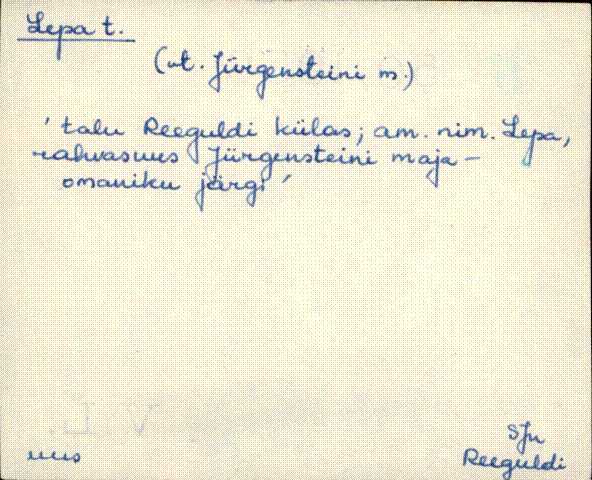 Lepa t.
(vt. Jürgensteini m.)
'talu Reeguldi külas; am. nim. Lepa,
rahvasuus Jürgensteini maja-
omaniku järgi'
SJn
uus
Reeguldi